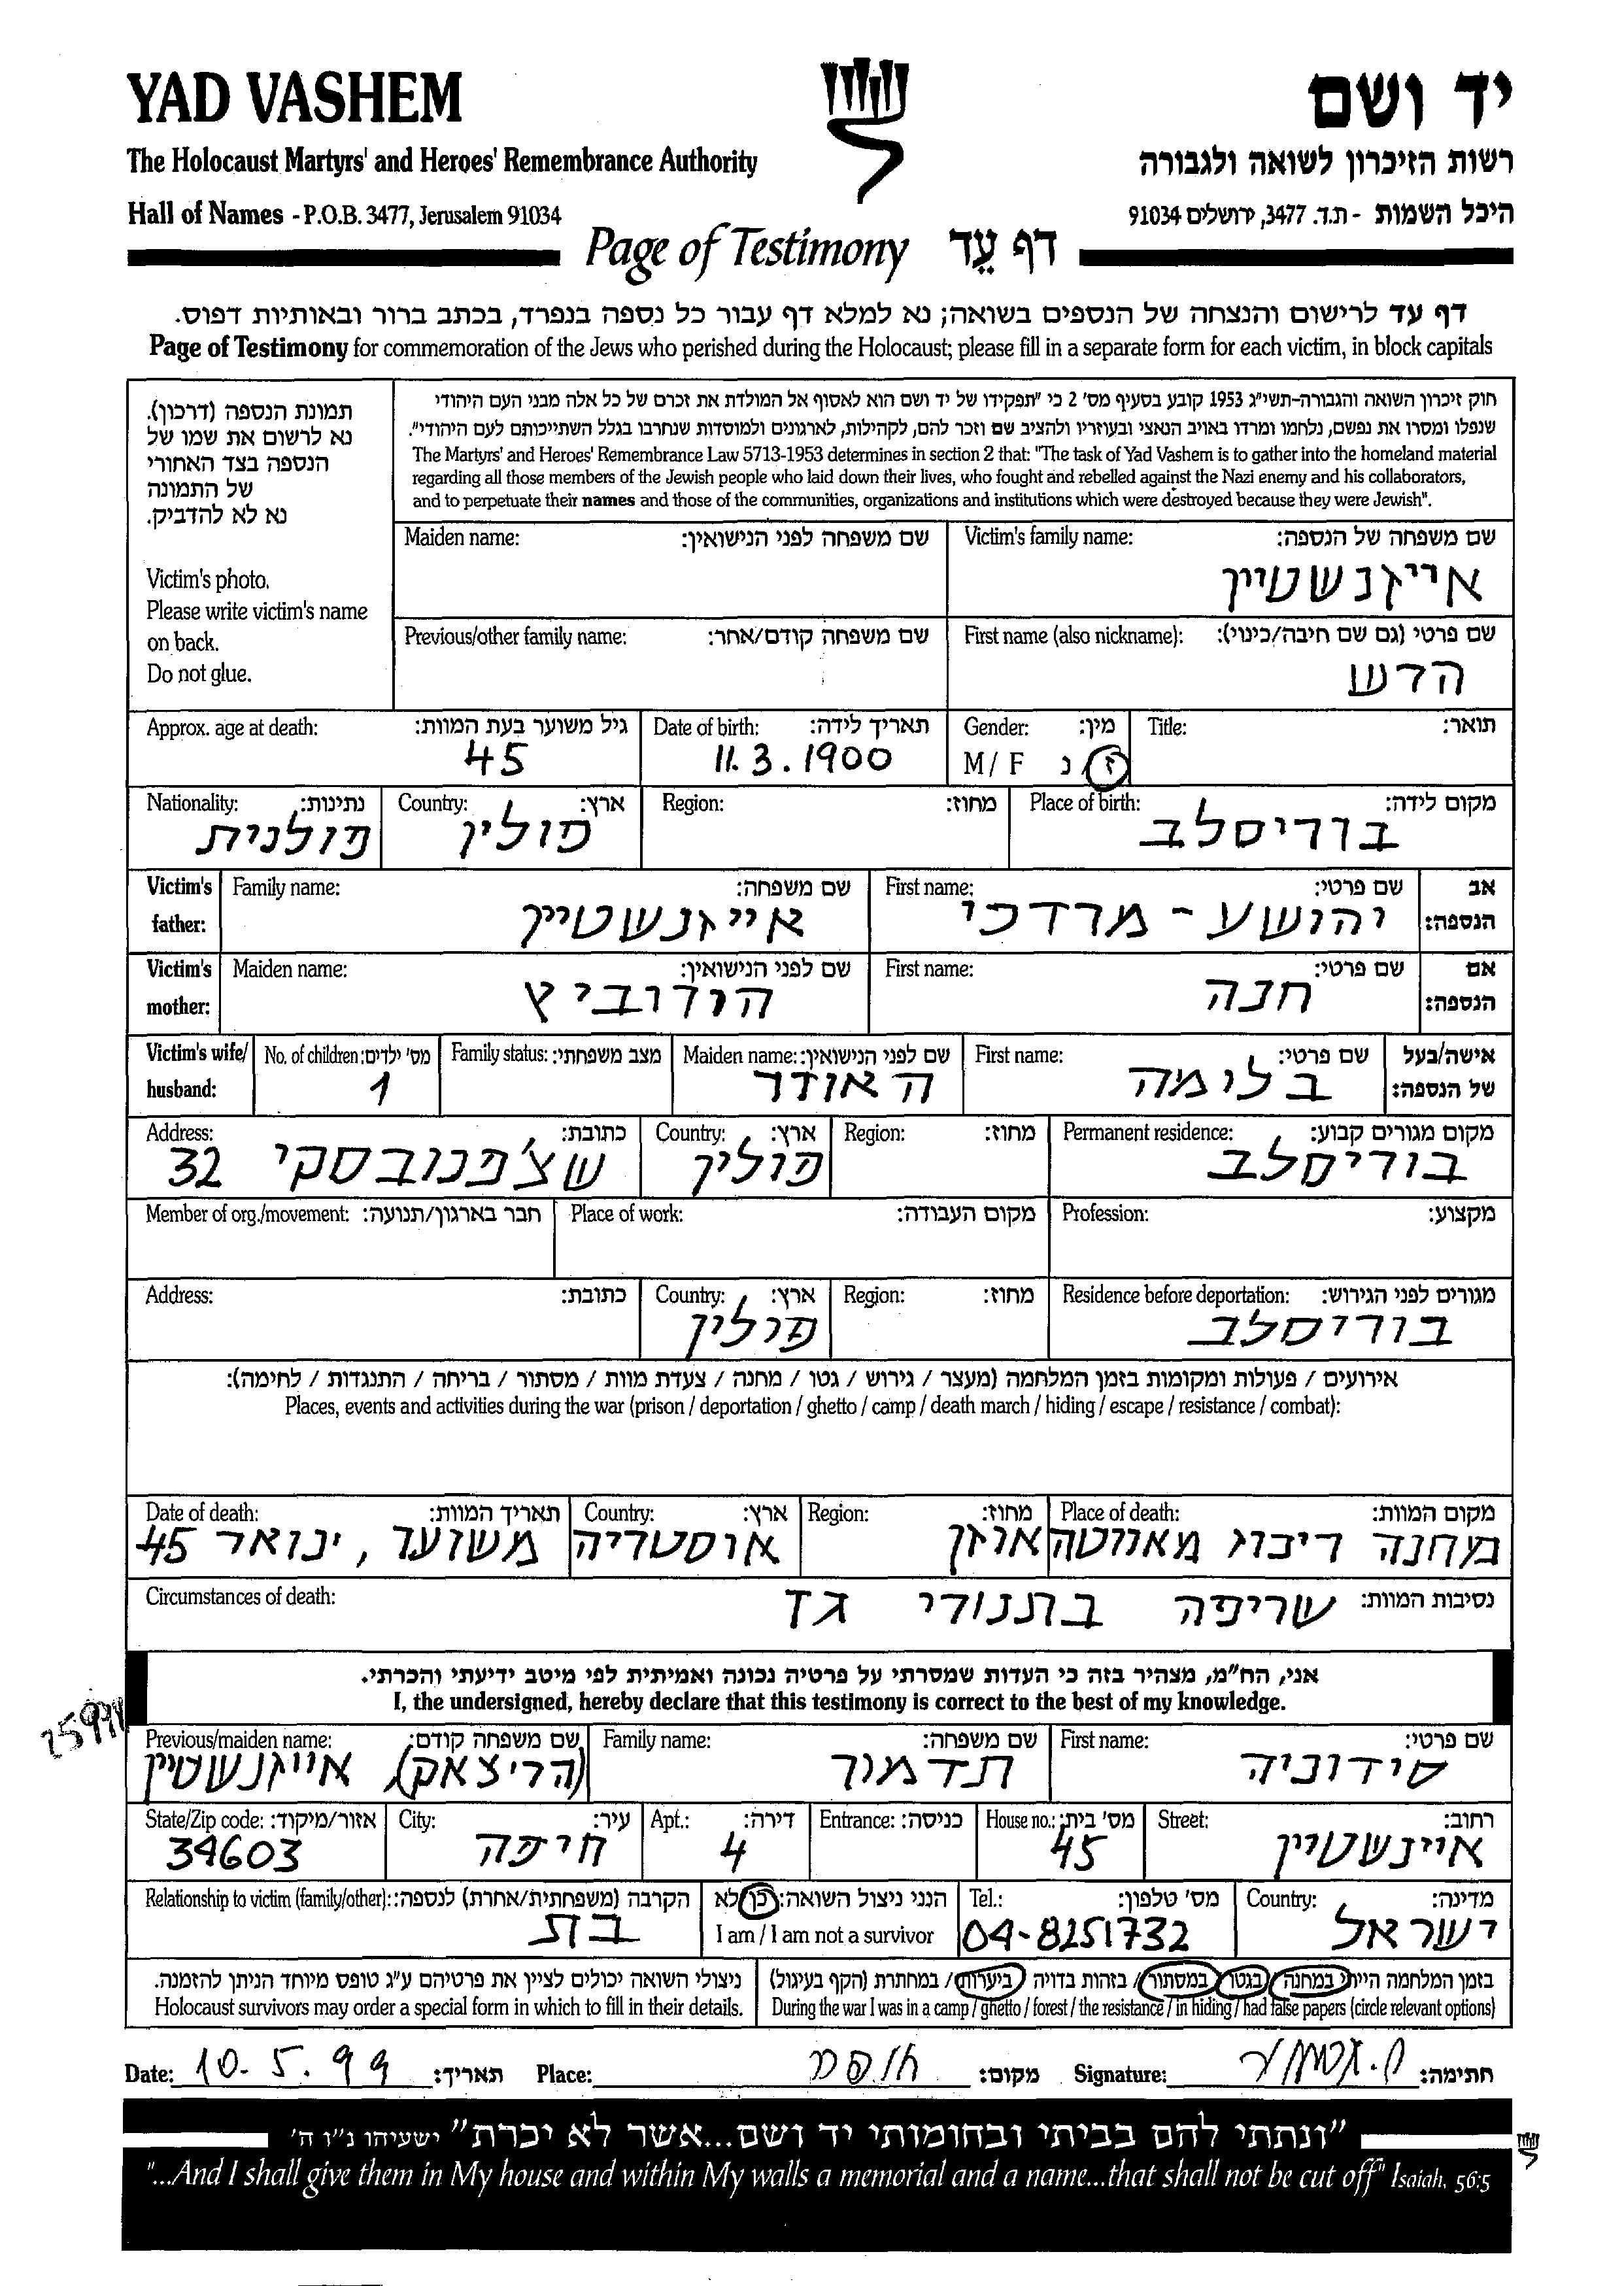 YAD VASHEM
יד ושם
The Holocaust Martyrs' and Heroes' Remembrance Authority
רשות הזיכרון לשואה ולגבורה
Hall of Names - P.O.B. 3477, Jerusalem 91034
היכל השמות - ת.ד. 3477, ירושלים 91034
Page of Testimony דף עֵד
דף עד לרישום והנצחה של הנספים בשואה; נא למלא דף עבור כל נספה בנפרד, בכתב ברור ובאותיות דפוס.
Page of Testimony for commemoration of the Jews who perished during the Holocaust; please fill in a separate form for each victim, in block capitals
תמונת הנספה (דרכון).
נא לרשום את שמו של
הנספה בצד האחורי
של התמונה
נא לא להדביק.
Victim's photo.
Please write victim's name
on back.
Do not glue.
חוק זיכרון השואה והגבורה-תשי"ג 1953 קובע בסעיף מס' 2 כי "תפקידו של יד ושם הוא לאסוף אל המולדת את זכרם של כל אלה מבני העם היהודי
שנפלו ומסרו את נפשם, נלחמו ומרדו באויב הנאצי ובעוזריו ולהציב שם וזכר להם, לקהילות, לארגונים ולמוסדות שנחרבו בגלל השתייכותם לעם היהודי".
The Martyrs' and Heroes' Remembrance Law 5713-1953 determines in section 2 that: "The task of Yad Vashem is to gather into the homeland material
regarding all those members of the Jewish people who laid down their lives, who fought and rebelled against the Nazi enemy and his collaborators,
and to perpetuate their names and those of the communities, organizations and institutions which were destroyed because they were Jewish".
שם משפחה של הנספה: Victim's family name:
אייזנשטיין
שם משפחה לפני הנישואין: Maiden name:
שם פרטי (גם שם חיבה/כינוי): First name (also nickname):
הרש
שם משפחה קודם/אחר: Previous/other family name:
תואר: Title:
מין: Gender:
ז / נ M / F
תאריך לידה: Date of birth:
11.3.1900
גיל משוער בעת המוות: Approx. age at death:
45
מקום לידה: Place of birth:
בוריסלב
מחוז: Region:
ארץ: Country:
פולין
נתינות: Nationality:
פולנית
אב הנספה: Victim's father:
שם פרטי: First name:
יהושע - מרדכי
שם משפחה: Family name:
אייזנשטיין
אם הנספה: Victim's mother:
שם פרטי: First name:
חנה
שם לפני הנישואין: Maiden name:
הורוביץ
אישה/בעל של הנספה: Victim's wife/ husband:
שם פרטי: First name:
בלימה
שם לפני הנישואין: Maiden name:
האודר
מצב משפחתי: Family status:
מס' ילדים: No. of children:
1
מקום מגורים קבוע: Permanent residence:
בוריסלב
מחוז: Region:
ארץ: Country:
פולין
כתובת: Address:
שצ'פנובסקי 32
מקצוע: Profession:
מקום העבודה: Place of work:
חבר בארגון/תנועה: Member of org./movement:
מגורים לפני הגירוש: Residence before deportation:
בוריסלב
מחוז: Region:
ארץ: Country:
פולין
כתובת: Address:
אירועים / פעולות ומקומות בזמן המלחמה (מעצר / גירוש / גטו / מחנה / צעדת מוות / מסתור / בריחה / התנגדות / לחימה):
Places, events and activities during the war (prison / deportation / ghetto / camp / death march / hiding / escape / resistance / combat):
מקום המוות: Place of death:
מחוז: Region:
מחנה ריכוז מאווטהאוזן
ארץ: Country:
אוסטריה
תאריך המוות: Date of death:
משוער, ינואר 45
נסיבות המוות: Circumstances of death:
שריפה בתנורי גז
אני, הח"מ, מצהיר בזה כי העדות שמסרתי על פרטיה נכונה ואמיתית לפי מיטב ידיעתי והכרתי.
I, the undersigned, hereby declare that this testimony is correct to the best of my knowledge.
שם פרטי: First name:
סידוניה
שם משפחה: Family name:
תדמור
שם משפחה קודם: Previous/maiden name:
(הריצאק), אייזנשטיין
רחוב: Street:
איינשטיין
מס' בית: House no.:
45
כניסה: Entrance:
דירה: Apt.:
4
עיר: City:
חיפה
אזור/מיקוד: State/Zip code:
34603
מדינה: Country:
ישראל
מס' טלפון: Tel.:
04-8251732
הנני ניצול השואה: כן לא
I am / I am not a survivor
הקרבה (משפחתית/אחרת) לנספה: Relationship to victim (family/other):
בת
בזמן המלחמה הייתי במחנה / בגטו / במסתור / בזהות בדויה / ביערות / במחתרת (הקף בעיגול)
During the war I was in a camp / ghetto / forest / the resistance / in hiding / had false papers (circle relevant options)
ניצולי השואה יכולים לציין את פרטיהם ע"ג טופס מיוחד הניתן להזמנה.
Holocaust survivors may order a special form in which to fill in their details.
Date: 10.5.99 תאריך: Place: חיפה מקום: Signature: חתימה:
"ונתתי להם בביתי ובחומותי יד ושם...אשר לא יכרת" ישעיהו נ"ו ה'
"...And I shall give them in My house and within My walls a memorial and a name...that shall not be cut off" Isaiah, 56:5